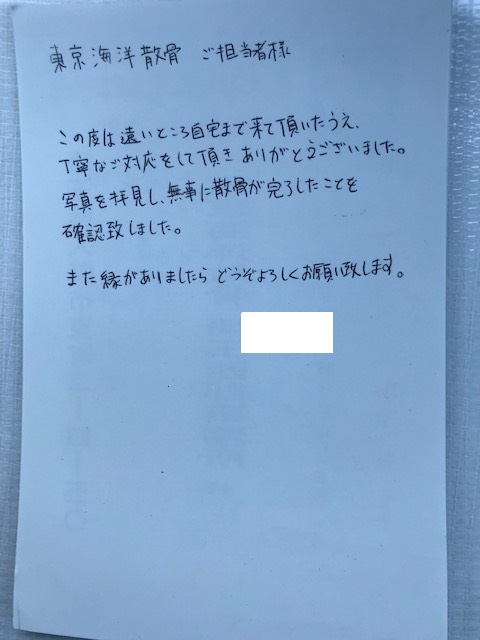 東京海洋散骨 ご担当者様
この度は遠いところ自宅まで来て頂いたうえ、
丁寧なご対応をして頂きありがとうございました。
写真を拝見し、無事に散骨が完了したことを
確認致しました。
また縁がありましたら どうぞよろしくお願い致します。